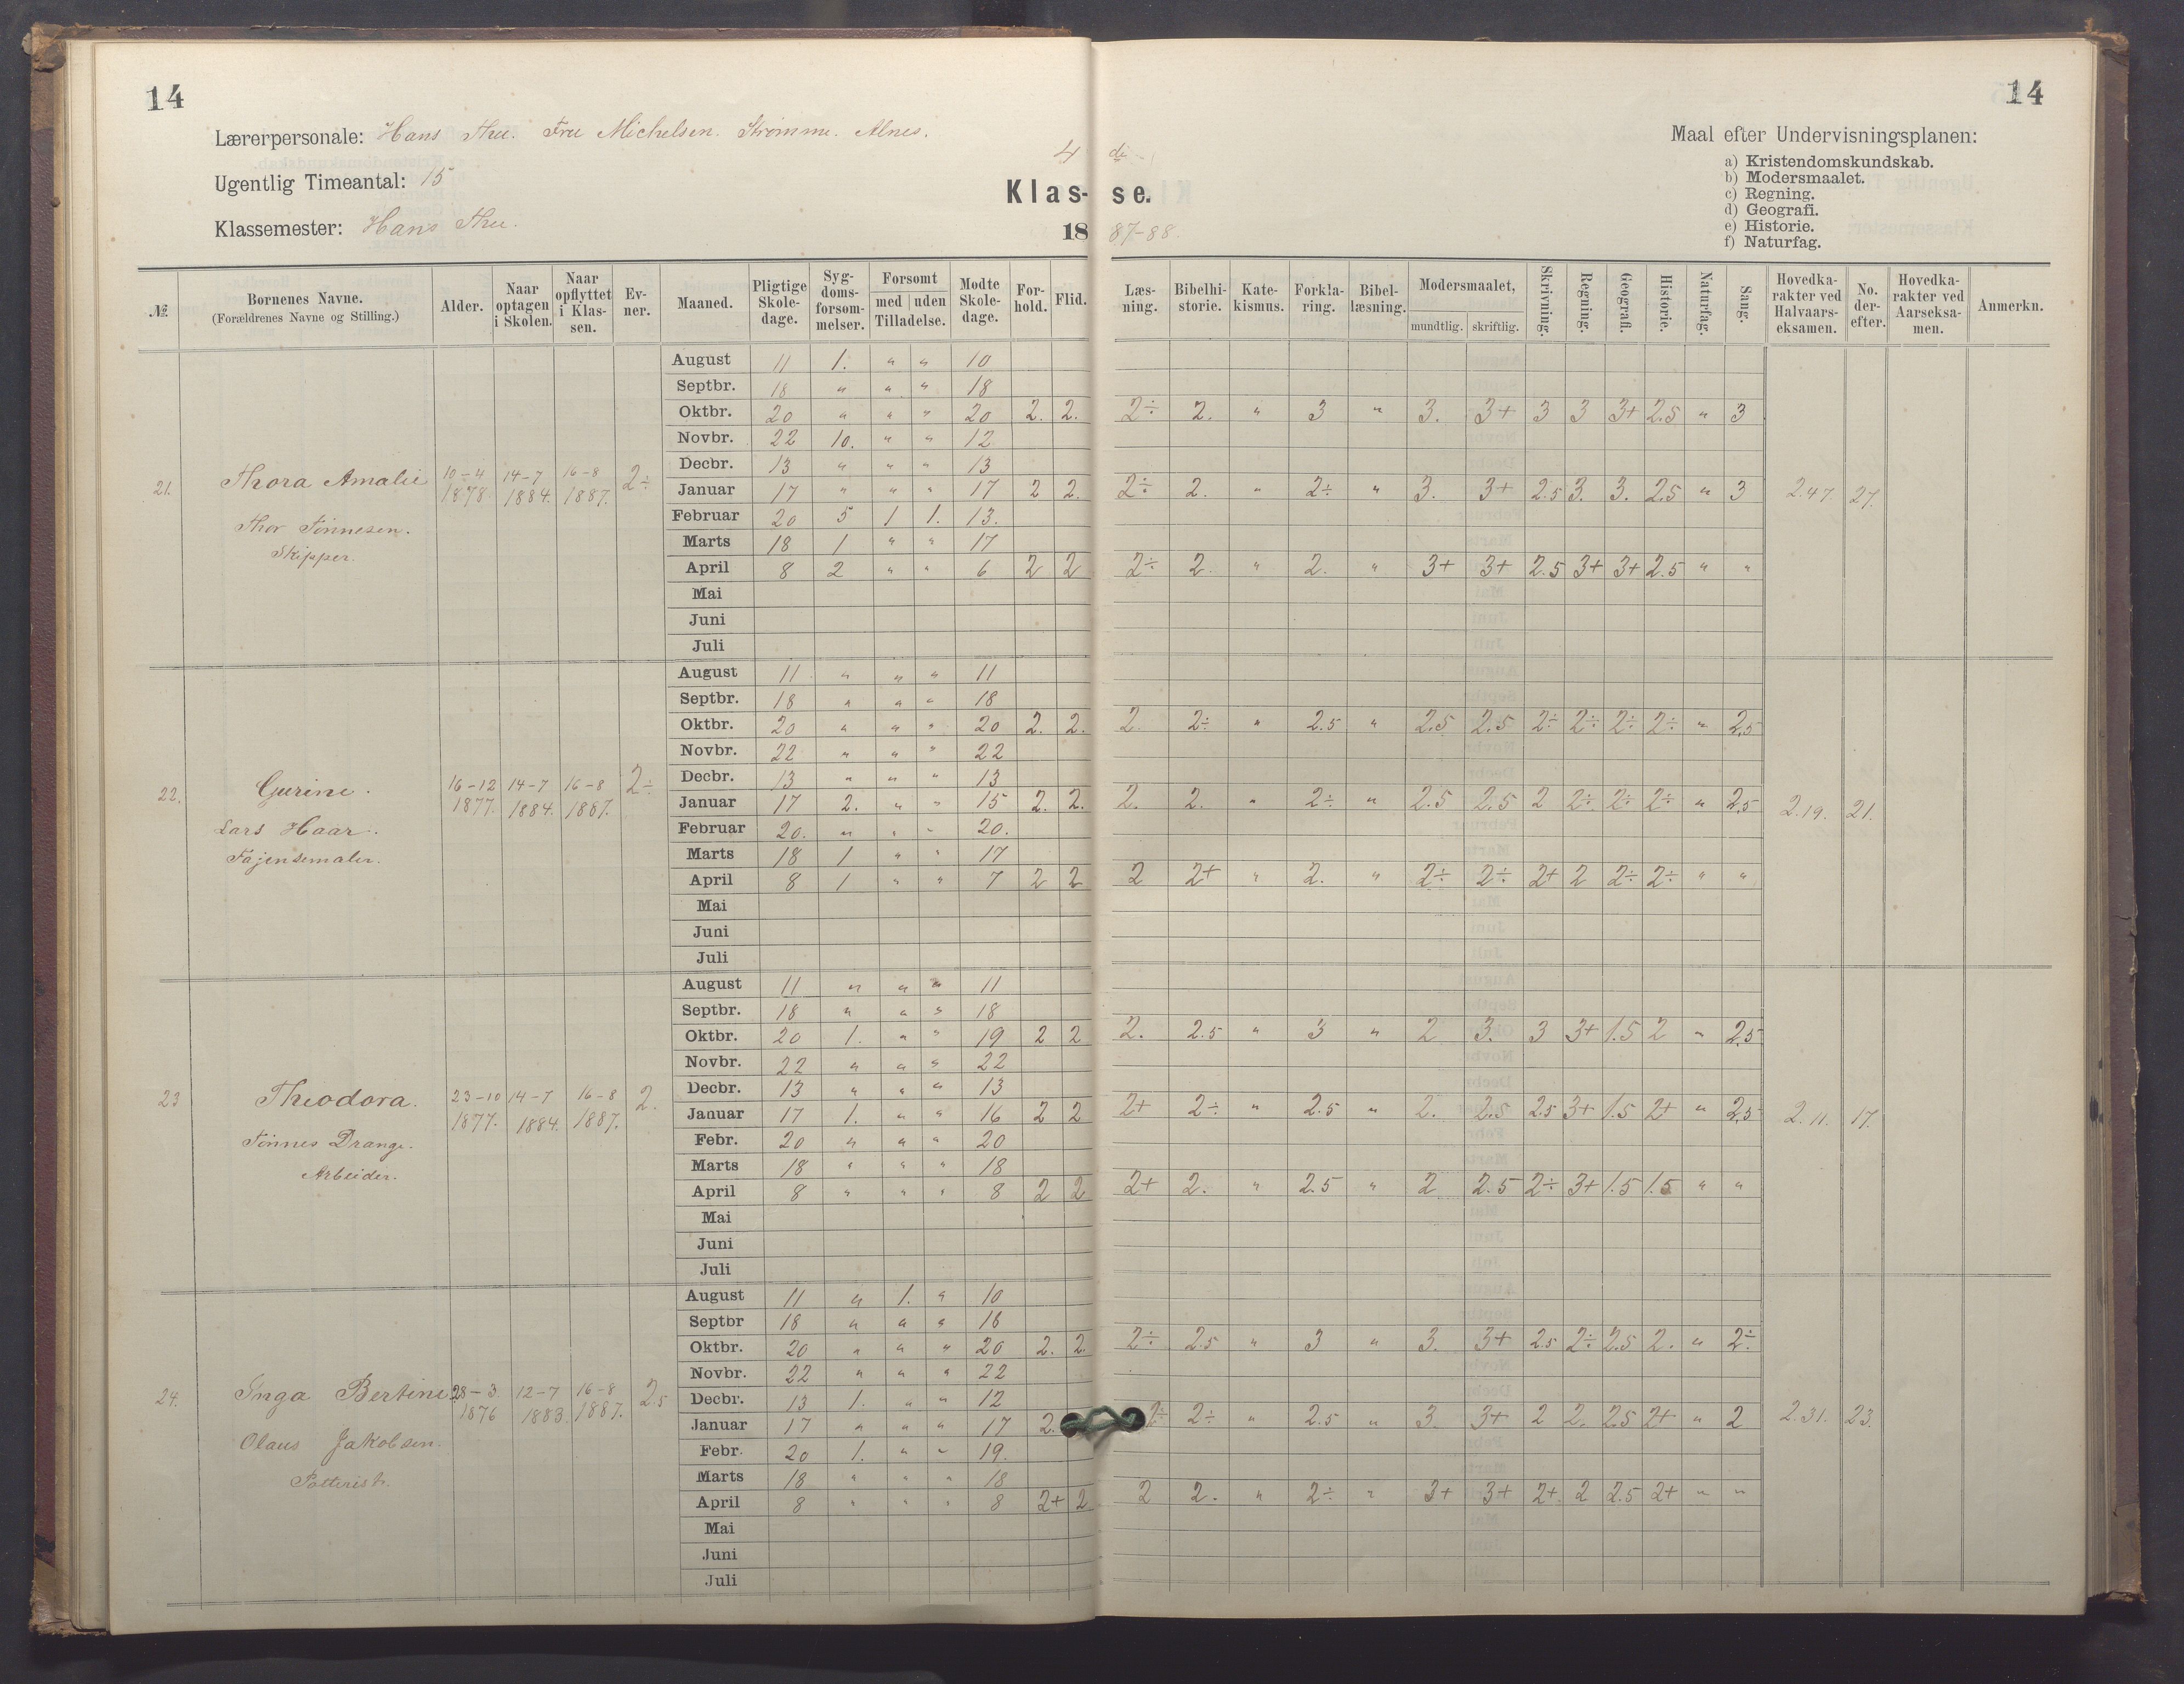 14
14
Lærerpersonale: Hans Thu. Fru Michelsen. Strømme. Alnes.
Ugentlig Timeantal: 15
Klassemester: Hans Thu.
4 de
Klas-se.
1887-88.
Maal efter Undervisningsplanen:
a) Kristendomskundskab.
b) Modersmaalet.
c) Regning.
d) Geografi.
e) Historie.
f) Naturfag.
№ Børnenes Navne. (Forældrenes Navne og Stilling.) Alder. Naar optagen i Skolen. Naar opflyttet i Klassen. Evner. Maaned. Pligtige Skoledage. Sygdomsforsømmelser. Forsømt med uden Tilladelse. Mødte Skoledage. Forhold. Flid. Læsning. Bibelhistorie. Katekismus. Forklaring. Bibellæsning. Modersmaalet, mundtlig. skriftlig. Skrivning. Regning. Geografi. Historie. Naturfag. Sang. Hovedkarakter ved Halvaarseksamen. No. derefter. Hovedkarakter ved Aarseksamen. Anmerkn.
21. Thora Amalie 10-4 1878. 14-7 1884. 16-8 1887. 2÷
Thor Tønnesen.
Skipper.
August 11 1. " " 10
Septbr. 18 " " " 18
Oktbr. 20 " " " 20 2. 2. 2÷ 2. " 3 " 3. 3+ 3 3 3+ 2.5 " 3
Novbr. 22 10. " " 12
Decbr. 13 " " " 13
Januar 17 " " " 17 2 2. 2÷ 2. " 2÷ " 3. 3+ 2.5 3. 3. 2.5 " 3 2.47. 27.
Februar 20 5 1 1. 13.
Marts 18 1 " " 17
April 8 2 " " 6 2 2 2÷ 2. " 2. " 3+ 3+ 2.5 3+ 3+ 2.5 " "
Mai
Juni
Juli
22. Gurine. 16-12 1877. 14-7 1884. 16-8 1887. 2÷
Lars Haar.
Fajensemaler.
August 11 " " " 11
Septbr. 18 " " " 18
Oktbr. 20 " " " 20 2. 2. 2. 2÷ " 2.5 " 2.5 2.5 2÷ 2÷ 2÷ 2÷ " 2.5
Novbr. 22 " " " 22
Decbr. 13 " " " 13
Januar 17 2. " " 15 2. 2. 2. 2. " 2÷ " 2.5 2.5 2 2÷ 2÷ 2÷ " 2.5 2.19. 21.
Februar 20. " " " 20.
Marts 18 1 " " 17
April 8 1 " " 7 2 2 2 2+ " 2. " 2÷ 2÷ 2+ 2 2÷ 2÷ " "
Mai
Juni
Juli
23 Theodora. 23-10 1877. 14-7 1884. 16-8 1887. 2.
Tønnes Drange.
Arbeider.
August 11 " " " 11
Septbr. 18 " " " 18
Oktbr. 20 1. " " 19 2 2 2. 2.5 " 3 " 2 3. 3 3+ 1.5 2 " 2.5
Novbr. 22 " " " 22
Decbr. 13 " " " 13
Januar 17 1. " " 16 2 2 2+ 2÷ " 2.5 " 2. 2.5 2.5 3+ 1.5 2+ " 2.5 2.11. 17.
Febr. 20 " " " 20
Marts 18 " " " 18
April 8 " " " 8 2 2 2+ 2. " 2.5 " 2 2.5 2÷ 3+ 1.5 1.5 " "
Mai
Juni
Juli
24. Inga Bertine 28-3 1876 12-7 1883. 16-8 1887. 2.5
Olaus Jakobsen.
Potterist.
August 11 " 1. " 10
Septbr 18 " " " 18
Oktbr. 20 " " " 20 2. 2. 2÷ 2.5 " 3 " 3. 3+ 2.5 2÷ 2.5 2. " 2÷
Novbr. 22 " " " 22
Decbr. 13 1. " " 12
Januar 17 " " " 17 2. 2÷ 2÷ " 2.5 " 3. 3+ 2 2. 2.5 2+ " 2 2.31. 23.
Febr. 20 1. " " 19.
Marts 18 " " " 18
April 8 " " " 8 2+ 2 2 2. " 2÷ " 3+ 3+ 2+. 2 2.5 2+ " "
Mai
Juni
Juli